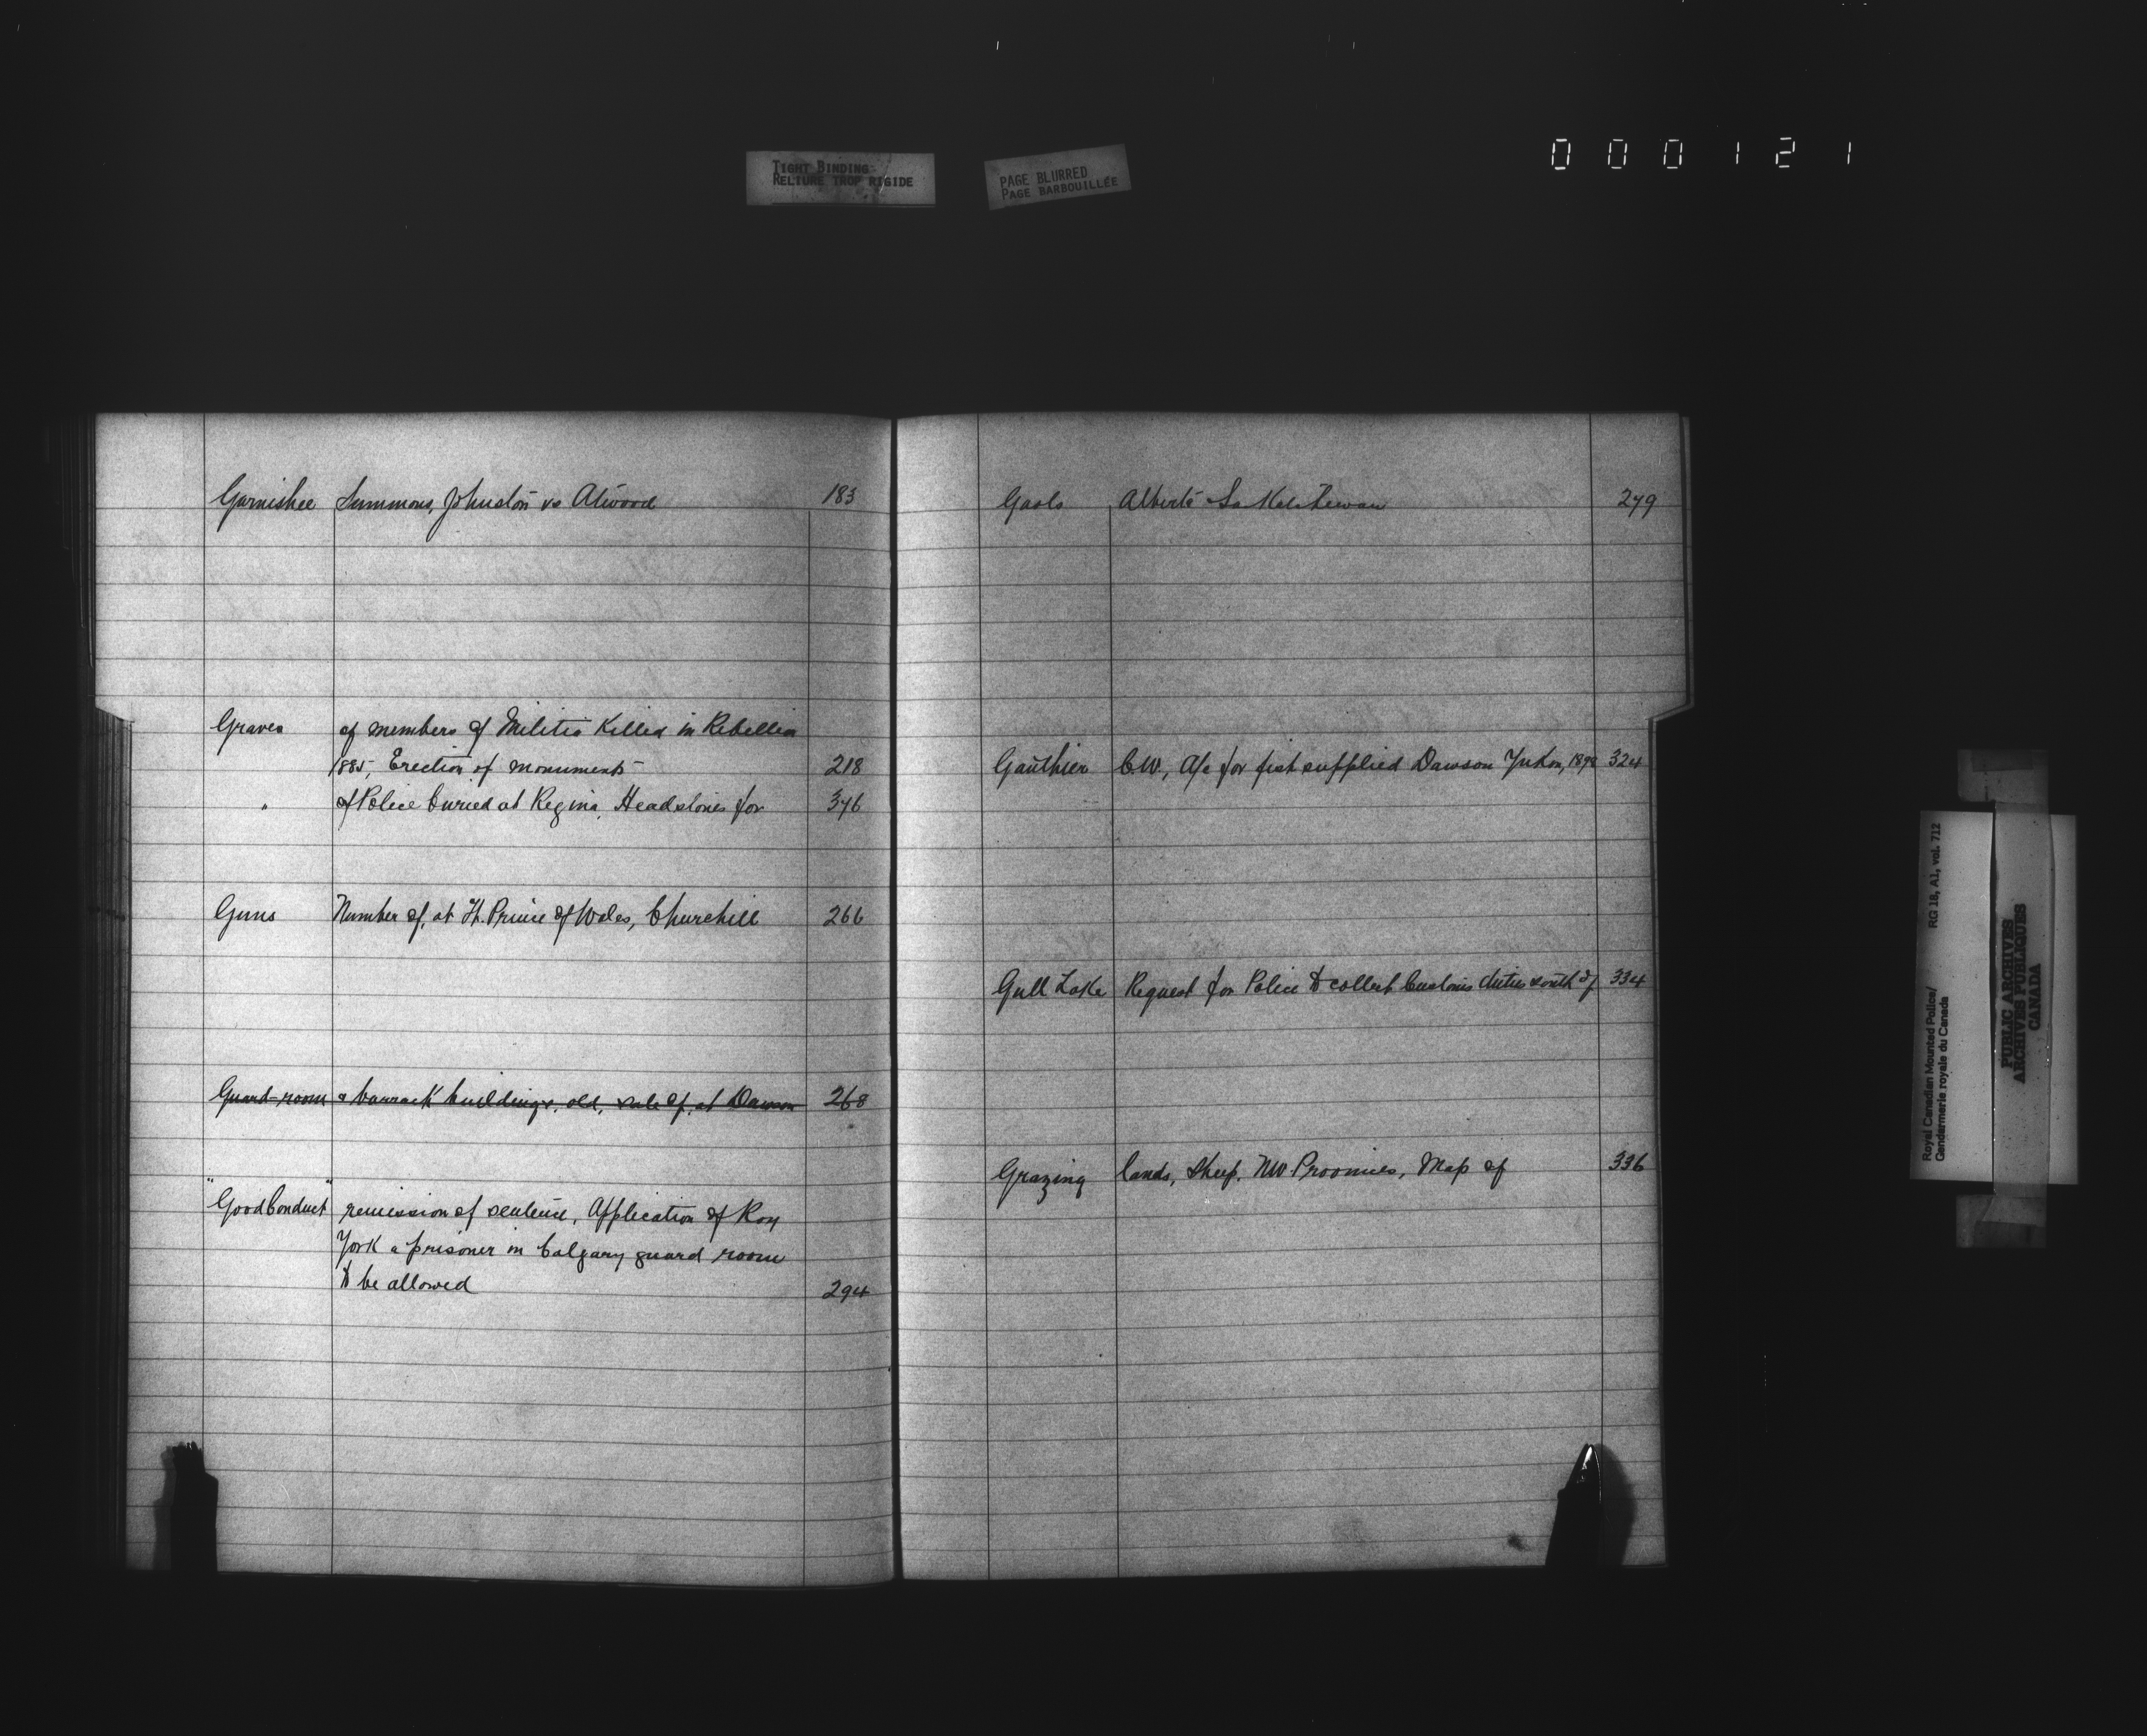 TIGHT BINDING
RELIURE TROP RIGIDE
PAGE BLURRED
PAGE BARBOUILLÉE
000121
Garnishee Summons, Johnston vs Atwood 183
Graves of members of Militia Killed in Rebellion
1885, Erection of monuments 218
" of Police buried at Regina, Headstones for 376
Guns Number of, at Ft. Prince of Wales, Churchill 266
Guard-room & barrack buildings, old, sale of, at Dawson 268
"Good Conduct" remission of sentence, Application of Roy
York a prisoner in Calgary guard room
to be allowed 294
Gaols Alberta & Saskatchewan 279
Gauthier C.W., A/c for fish supplied Dawson Yukon, 1898 324
Gull Lake Request for Police to collect Customs duties south of 334
Grazing lands, Sheep, NW. Provinces, Map of 336
Royal Canadian Mounted Police/ RG 18, A1, vol. 712
Gendarmerie royale du Canada
PUBLIC ARCHIVES
ARCHIVES PUBLIQUES
CANADA